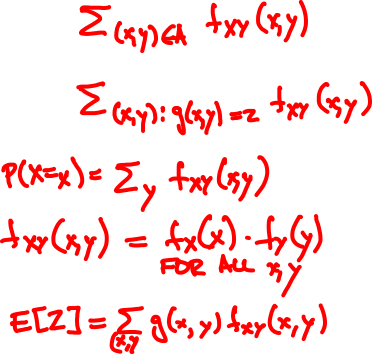 Σ(x,y)∈A fXY(x,y)
Σ(x,y):g(x,y)=z fXY(x,y)
P(X=x)=Σy fXY(x,y)
fXY(x,y) = fX(x)·fY(y)
FOR ALL x,y
E[Z]=Σ(x,y) g(x,y) fXY(x,y)